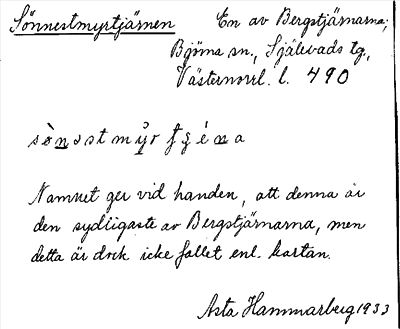 Sönnestmyrtjärnen
En av Bergstjärnarna;
Björna sn., Själevads tg,
Västernorrl. l. 490
Namnet ger vid handen, att denna är
den sydligaste av Bergstjärnarna, men
detta är dock icke fallet enl. kartan.
Asta Hammarberg 1933